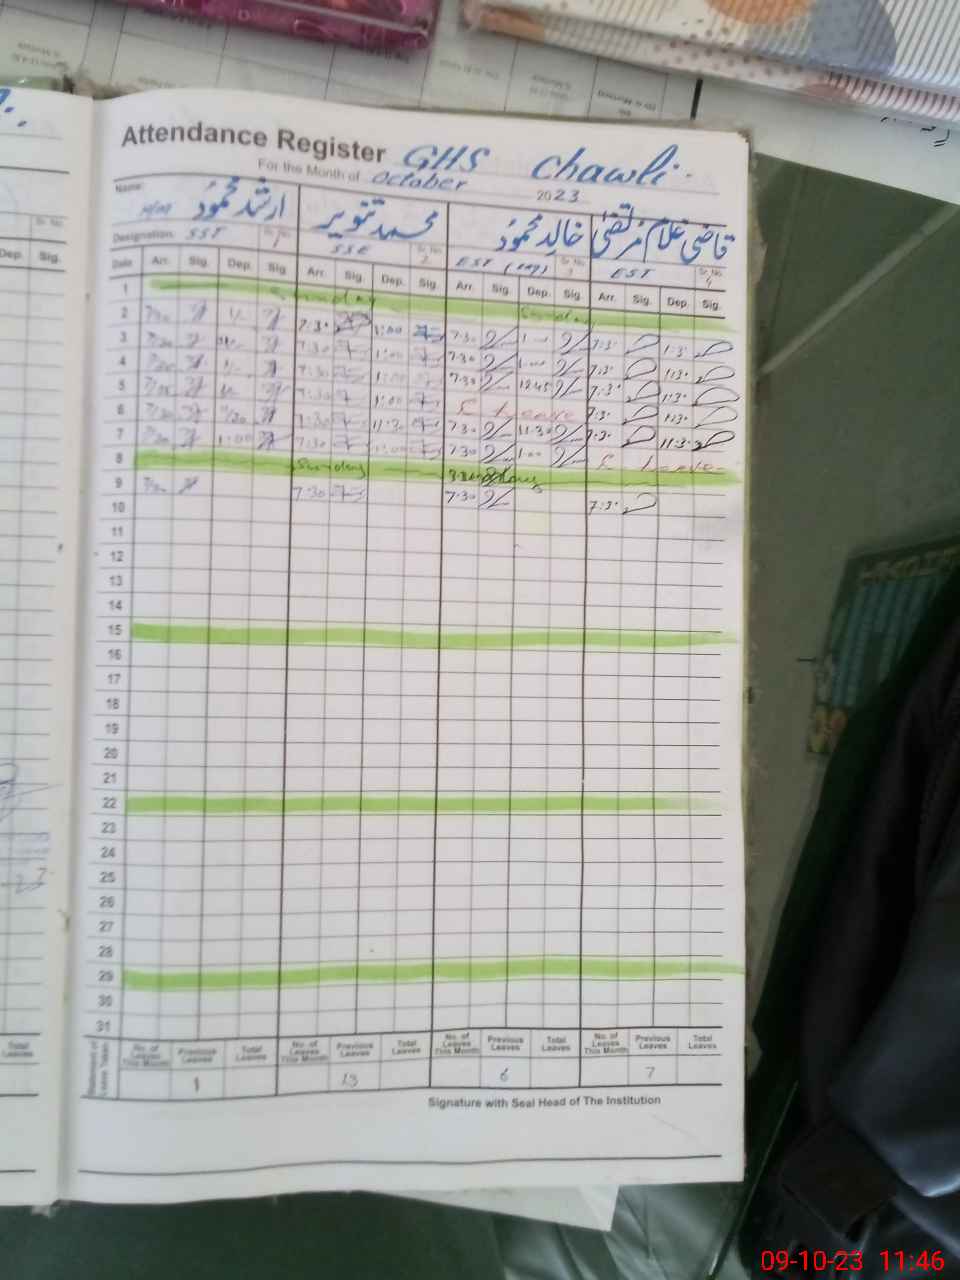 Attendance Register GHS Chawli.
For the Month of October 2023
Name: H/M ارشد محمود محمد تنویر خالد محمود قاضی غلام مرتضیٰ
Designation: SST Sr. No. 1 SSE Sr. No. 2 EST Sr. No. 3 EST Sr. No. 4
Date Arr. Sig. Dep. Sig. Arr. Sig. Dep. Sig. Arr. Sig. Dep. Sig. Arr. Sig. Dep. Sig.
1 Sunday Sunday
2 7:30 1:00 7:30 1:00 7:3· 1:3·
3 7:30 1:00 7:30 1:00 7:3· 1:3·
4 7:30 1:00 7:30 12:45 7:3· 1:3·
5 7:30 1:00 C Leave 7:3· 1:3·
6 7:30 11:30 7:30 11:30 7:3· 11:3·
7 1:00 7:30 1:00 7:30 1:00 C Leave
8 Sunday Sunday
9 7:30 7:30 7:3·
10
11
12
13
14
15
16
17
18
19
20
21
22
23
24
25
26
27
28
29
30
31
Statement of Leave Taken No. of Leaves This Month Previous Leaves Total Leaves No. of Leaves This Month Previous Leaves Total Leaves No. of Leaves This Month Previous Leaves Total Leaves No. of Leaves This Month Previous Leaves Total Leaves
1 13 6 7
Signature with Seal Head of The Institution
Sr. No.
Dep. Sig.
Total Leaves
09-10-23 11:46